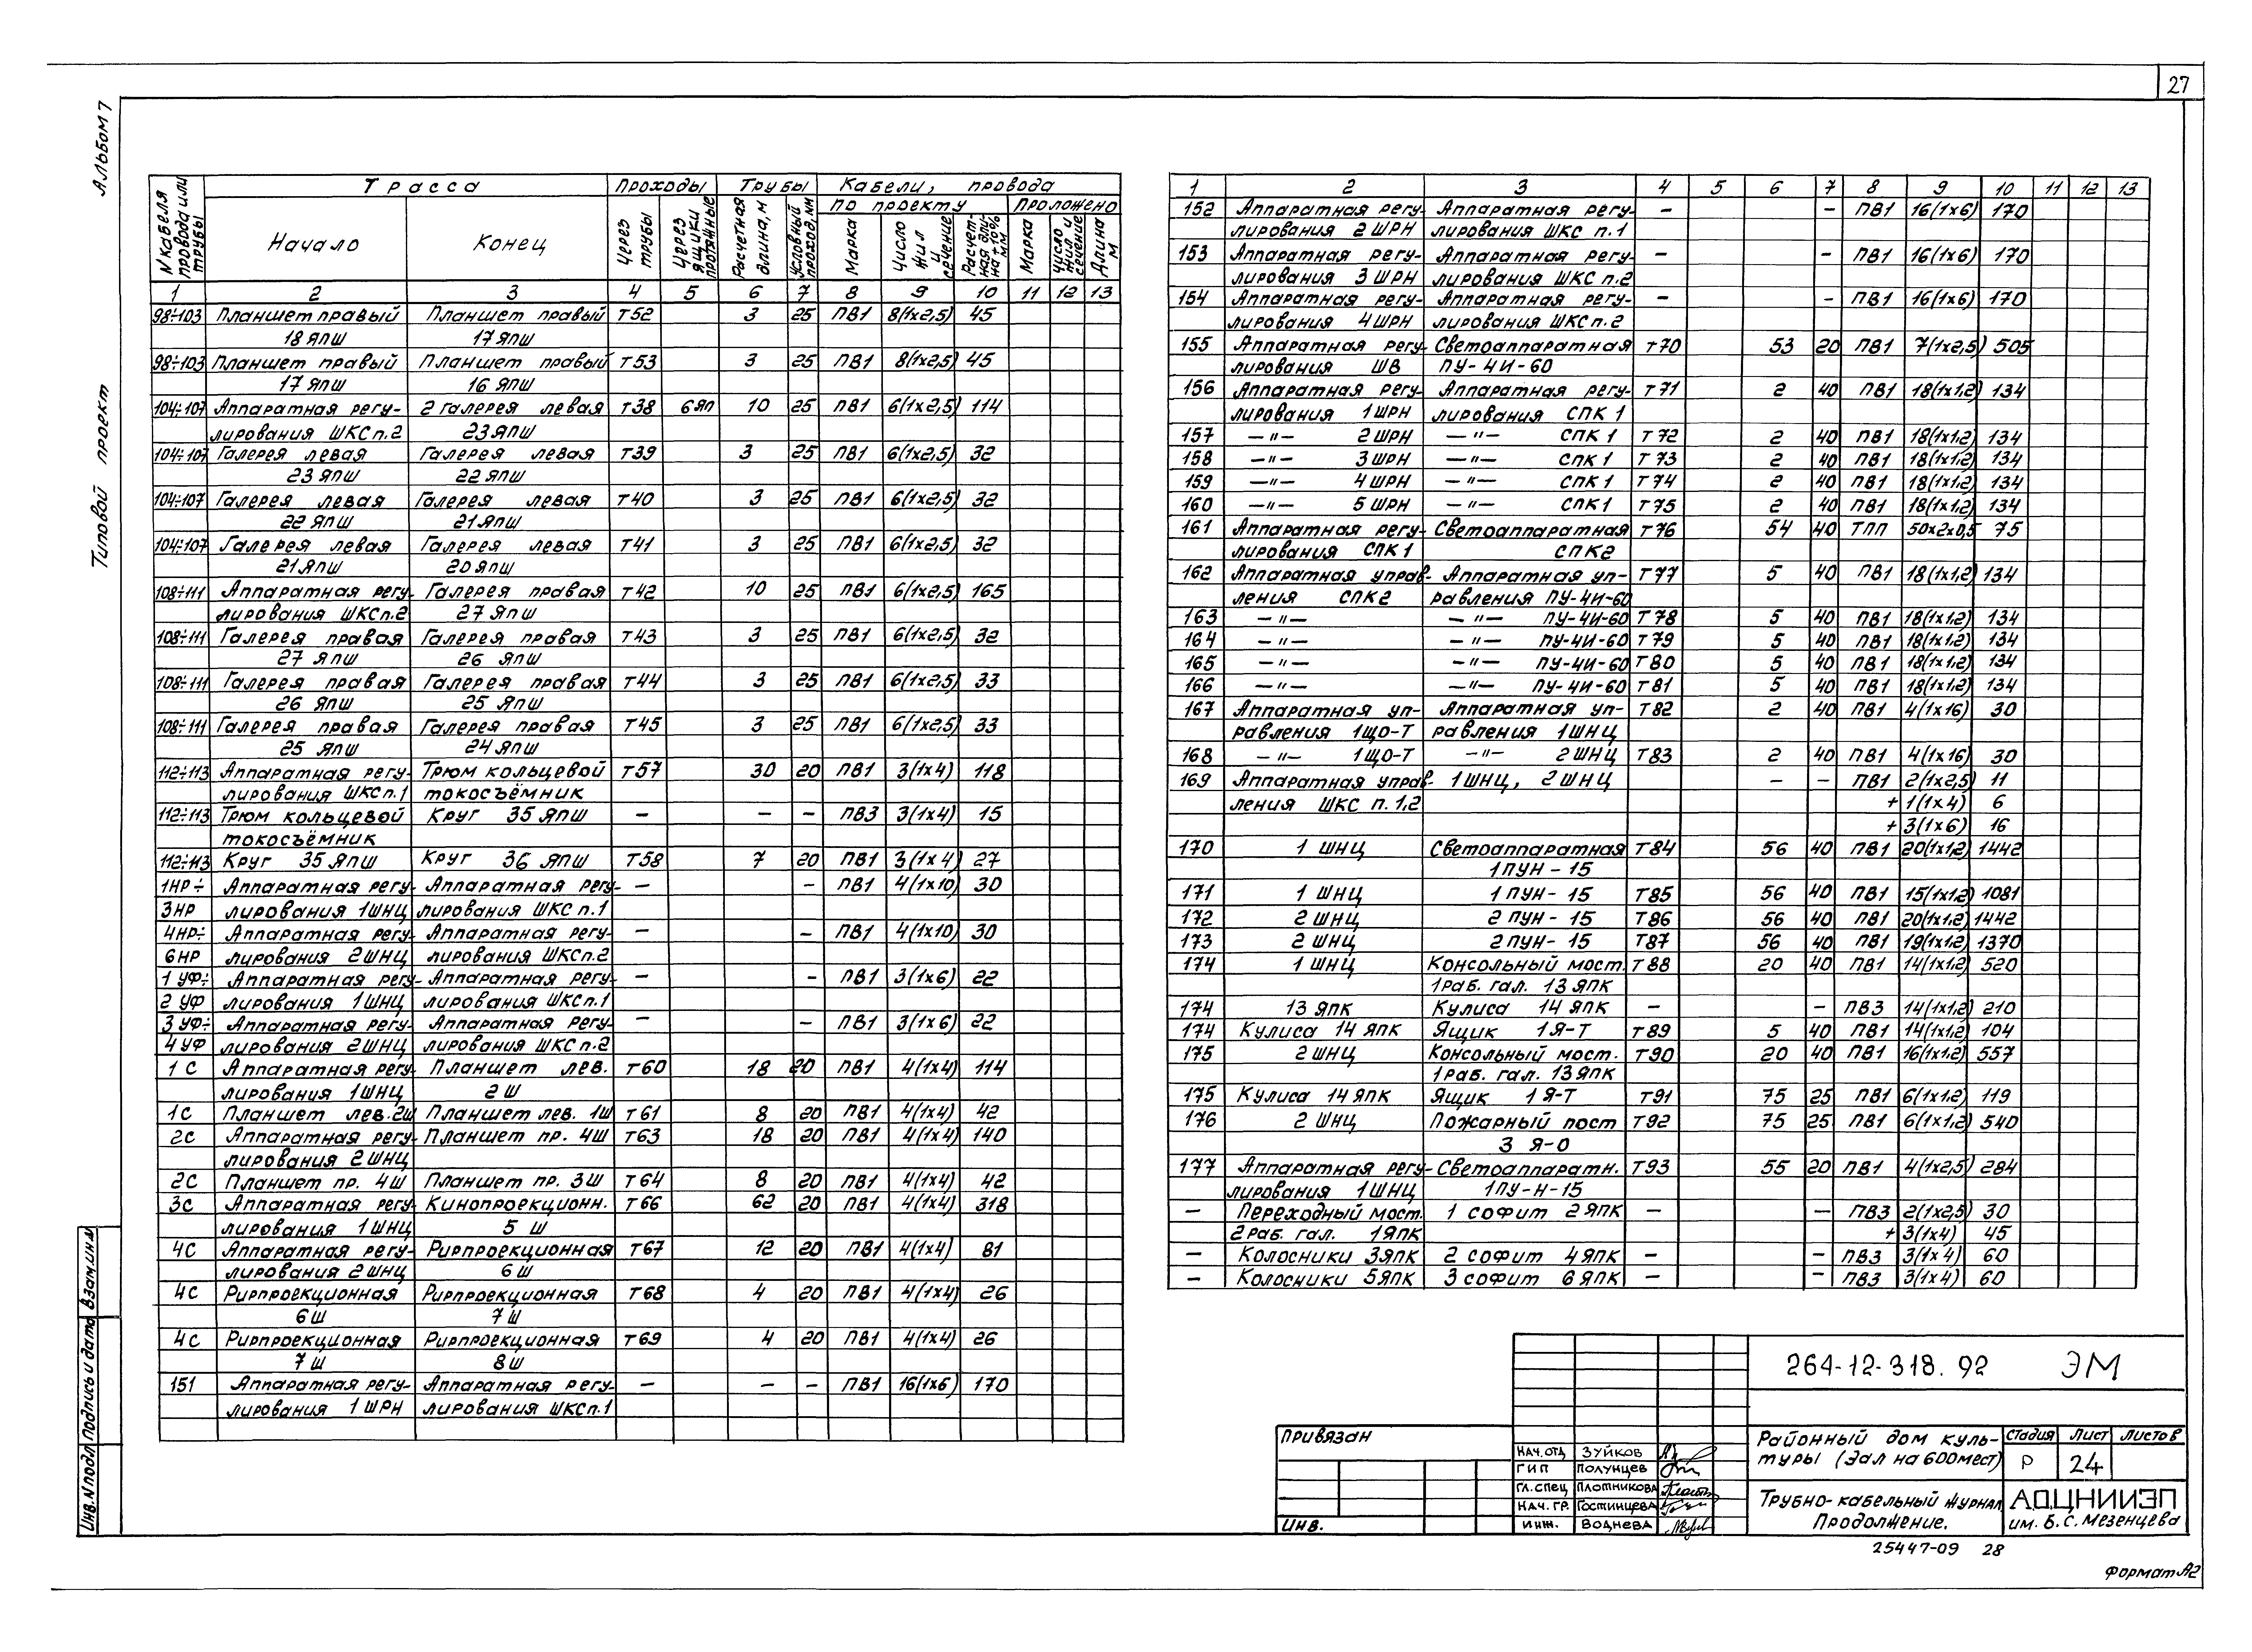 27
Альбом 7
Типовой проект
N кабеля провода или трубы | Трасса | Проходы | Трубы | Кабели, провода
по проекту | проложено
Начало | Конец | Через трубы | Через ящики протяжные | Расчетная длина, м | Условный проход, мм | Марка | Число жил и сечение | Расчетная длина +10% | Марка | Число жил и сечение | Длина м
1 2 3 4 5 6 7 8 9 10 11 12 13
98÷103 Планшет правый Планшет правый Т52 3 25 ПВ1 8(1х2,5) 45
18 ЯПШ 17 ЯПШ
98÷103 Планшет правый Планшет правый Т53 3 25 ПВ1 8(1х2,5) 45
17 ЯПШ 16 ЯПШ
104÷107 Аппаратная регу- 2 галерея левая Т38 6ЯП 10 25 ПВ1 6(1х2,5) 114
лирования ШКС п.2 23 ЯПШ
104÷107 Галерея левая Галерея левая Т39 3 25 ПВ1 6(1х2,5) 32
23 ЯПШ 22 ЯПШ
104÷107 Галерея левая Галерея левая Т40 3 25 ПВ1 6(1х2,5) 32
22 ЯПШ 21 ЯПШ
104÷107 Галерея левая Галерея левая Т41 3 25 ПВ1 6(1х2,5) 32
21 ЯПШ 20 ЯПШ
108÷111 Аппаратная регу- Галерея правая Т42 10 25 ПВ1 6(1х2,5) 165
лирования ШКС п.2 27 ЯПШ
108÷111 Галерея правая Галерея правая Т43 3 25 ПВ1 6(1х2,5) 32
27 ЯПШ 26 ЯПШ
108÷111 Галерея правая Галерея правая Т44 3 25 ПВ1 6(1х2,5) 33
26 ЯПШ 25 ЯПШ
108÷111 Галерея правая Галерея правая Т45 3 25 ПВ1 6(1х2,5) 33
25 ЯПШ 24 ЯПШ
112÷113 Аппаратная регу- Трюм кольцевой Т57 30 20 ПВ1 3(1х4) 118
лирования ШКС п.1 токосъёмник
112÷113 Трюм кольцевой Круг 35 ЯПШ — — — ПВ3 3(1х4) 15
токосъёмник
112÷113 Круг 35 ЯПШ Круг 36 ЯПШ Т58 7 20 ПВ1 3(1х4) 27
1НР÷ Аппаратная регу- Аппаратная регу- — — ПВ1 4(1х10) 30
3НР лирования 1ШНЦ лирования ШКС п.1
4НР÷ Аппаратная регу- Аппаратная регу- — — ПВ1 4(1х10) 30
6НР лирования 2ШНЦ лирования ШКС п.2
1 УФ÷ Аппаратная регу- Аппаратная регу- — — ПВ1 3(1х6) 22
2 УФ лирования 1ШНЦ лирования ШКС п.1
3 УФ÷ Аппаратная регу- Аппаратная регу- — — ПВ1 3(1х6) 22
4 УФ лирования 2ШНЦ лирования ШКС п.2
1 С Аппаратная регу- Планшет лев. Т60 18 20 ПВ1 4(1х4) 114
лирования 1ШНЦ 2 Ш
1С Планшет лев. 2Ш Планшет лев. 1Ш Т61 8 20 ПВ1 4(1х4) 42
2С Аппаратная регу- Планшет пр. 4Ш Т63 18 20 ПВ1 4(1х4) 140
лирования 2 ШНЦ
2С Планшет пр. 4Ш Планшет пр. 3Ш Т64 8 20 ПВ1 4(1х4) 42
3С Аппаратная регу- Кинопроекционн. Т66 62 20 ПВ1 4(1х4) 318
лирования 1 ШНЦ 5 Ш
4С Аппаратная регу- Рирпроекционная Т67 12 20 ПВ1 4(1х4) 81
лирования 2 ШНЦ 6 Ш
4С Рирпроекционная Рирпроекционная Т68 4 20 ПВ1 4(1х4) 26
6 Ш 7 Ш
4С Рирпроекционная Рирпроекционная Т69 4 20 ПВ1 4(1х4) 26
7 Ш 8 Ш
151 Аппаратная регу- Аппаратная регу- — — — ПВ1 16(1х6) 170
лирования 1 ШРН лирования ШКС п.1
1 2 3 4 5 6 7 8 9 10 11 12 13
152 Аппаратная регу- Аппаратная регу- — — ПВ1 16(1х6) 170
лирования 2 ШРН лирования ШКС п.1
153 Аппаратная регу- Аппаратная регу- — — ПВ1 16(1х6) 170
лирования 3 ШРН лирования ШКС п.2
154 Аппаратная регу- Аппаратная регу- — — ПВ1 16(1х6) 170
лирования 4 ШРН лирования ШКС п.2
155 Аппаратная регу- Светоаппаратная Т70 53 20 ПВ1 7(1х2,5) 505
лирования ШВ ПУ-4И-60
156 Аппаратная регу- Аппаратная регу- Т71 2 40 ПВ1 18(1х1,2) 134
лирования 1 ШРН лирования СПК 1
157 —"— 2 ШРН —"— СПК 1 Т72 2 40 ПВ1 18(1х1,2) 134
158 —"— 3 ШРН —"— СПК 1 Т73 2 40 ПВ1 18(1х1,2) 134
159 —"— 4 ШРН —"— СПК 1 Т74 2 40 ПВ1 18(1х1,2) 134
160 —"— 5 ШРН —"— СПК 1 Т75 2 40 ПВ1 18(1х1,2) 134
161 Аппаратная регу- Светоаппаратная Т76 54 40 ТПП 50х2х0,5 75
лирования СПК 1 СПК2
162 Аппаратная управ- Аппаратная уп- Т77 5 40 ПВ1 18(1х1,2) 134
ления СПК2 равления ПУ-4И-60
163 —"— —"— ПУ-4И-60 Т78 5 40 ПВ1 18(1х1,2) 134
164 —"— —"— ПУ-4И-60 Т79 5 40 ПВ1 18(1х1,2) 134
165 —"— —"— ПУ-4И-60 Т80 5 40 ПВ1 18(1х1,2) 134
166 —"— —"— ПУ-4И-60 Т81 5 40 ПВ1 18(1х1,2) 134
167 Аппаратная уп- Аппаратная уп- Т82 2 40 ПВ1 4(1х16) 30
равления 1ЩО-Т равления 1ШНЦ
168 —"— 1ЩО-Т —"— 2 ШНЦ Т83 2 40 ПВ1 4(1х16) 30
169 Аппаратная управ- 1 ШНЦ, 2 ШНЦ — — ПВ1 2(1х2,5) 11
ления ШКС п. 1,2 + 1(1х4) 6
+ 3(1х6) 16
170 1 ШНЦ Светоаппаратная Т84 56 40 ПВ1 20(1х1,2) 1442
1 ПУН - 15
171 1 ШНЦ 1 ПУН - 15 Т85 56 40 ПВ1 15(1х1,2) 1081
172 2 ШНЦ 2 ПУН - 15 Т86 56 40 ПВ1 20(1х1,2) 1442
173 2 ШНЦ 2 ПУН - 15 Т87 56 40 ПВ1 19(1х1,2) 1370
174 1 ШНЦ Консольный мост. Т88 20 40 ПВ1 14(1х1,2) 520
1 раб. гал. 13 ЯПК
174 13 ЯПК Кулиса 14 ЯПК — — ПВ3 14(1х1,2) 210
174 Кулиса 14 ЯПК Ящик 1Я-Т Т89 5 40 ПВ1 14(1х1,2) 104
175 2 ШНЦ Консольный мост. Т90 20 40 ПВ1 16(1х1,2) 557
1 раб. гал. 13 ЯПК
175 Кулиса 14 ЯПК Ящик 1 Я-Т Т91 75 25 ПВ1 6(1х1,2) 119
176 2 ШНЦ Пожарный пост Т92 75 25 ПВ1 6(1х1,2) 540
3 Я-О
177 Аппаратная регу- Светоаппаратн. Т93 55 20 ПВ1 4(1х2,5) 284
лирования 1 ШНЦ 1ПУ-Н-15
— Переходный мост. 1 софит 2 ЯПК — ПВ3 2(1х2,5) 30
2 раб. гал. 1 ЯПК + 3(1х4) 45
— Колосники 3ЯПК 2 софит 4 ЯПК — — ПВ3 3(1х4) 60
— Колосники 5ЯПК 3 софит 6 ЯПК — — ПВ3 3(1х4) 60
264-12-318.92 ЭМ
Привязан
Инв.
Нач. отд Зуйков
ГИП Полунцев
Гл. спец Плотникова
Нач. гр. Гостинцева
Инж. Воднева
Районный дом куль-
туры (зал на 600 мест)
Стадия Лист Листов
Р 24
Трубно-кабельный журнал
Продолжение.
А.О.ЦНИИЭП
им. Б. С. Мезенцева
25447-09 28
Формат А2
Инв. N подл. Подпись и дата Взам. инв